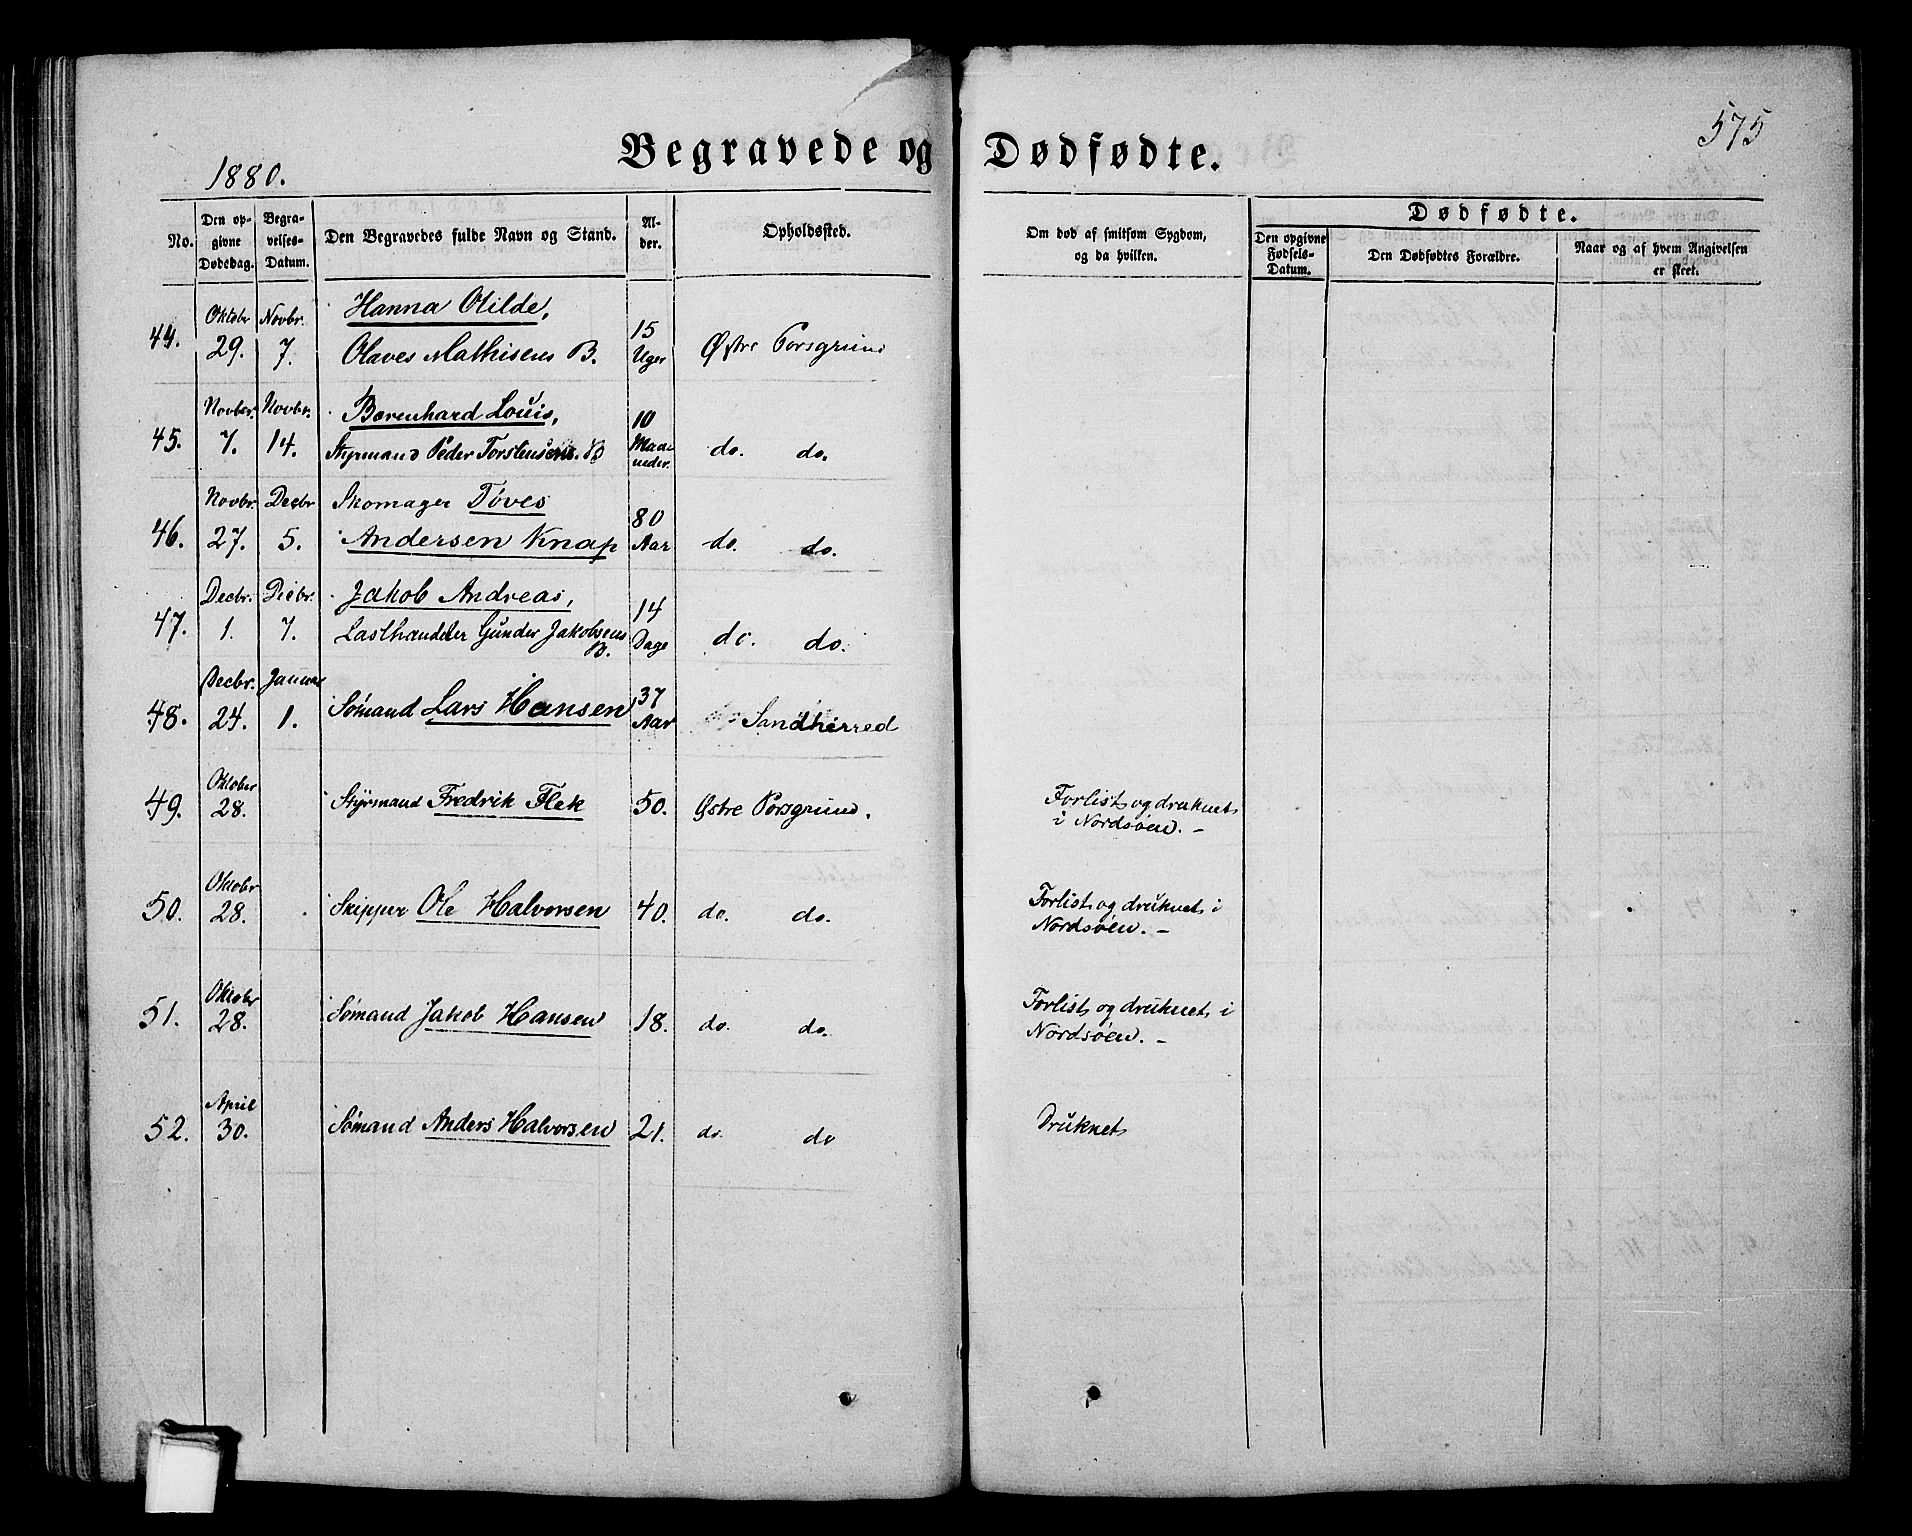 575
Begravede og Dødfødte.
1880.
No. Den opgivne Dødsdag. Begravelses-Datum. Den Begravedes fulde Navn og Stand. Alder. Opholdssted. Om død af smitsom Sygdom, og da hvilken. Dødfødte. Den opgivne Fødsels-Datum. Den Dødfødtes Forældre. Naar og af hvem Angivelsen er skeet.
Oktobr Novbr. Hanna Olilde,
44. 29. 7. Olaves Mathisens B. 15 Uger Østre Porsgrund
Novber. Novbr. Berenhard Louis,
45. 7. 14. Styrmand Peder Torstensens. B 10 Maaneder. do. do.
Novbr. Decbr Skomager Tøves
46. 27. 5. Andersen Knap 80 Aar do. do.
Decbr. Decbr. Jakob Andreas,
47. 1. 7. Lasthandler Gunder Jakobsens B. 14 Dage do. do.
Decbr. Januar
48. 24. 1. Sømand Lars Hansen 37 Aar Sandherred
Oktober
49. 28. Styrmand Fredrik Flek 50. Østre Porsgrund. Forlist og druknet
i Nordsøen. –
Oktobr
50. 28. Skipper Ole Halvorsen 40. do. do. Forlist og druknet i
Nordsøen. –
Oktobr
51. 28. Sømand Jakob Hansen 18. do. do. Forlist og druknet i
Nordsøen. –
April
52. 30. Sømand Anders Halvorsen 21. do. do Druknet